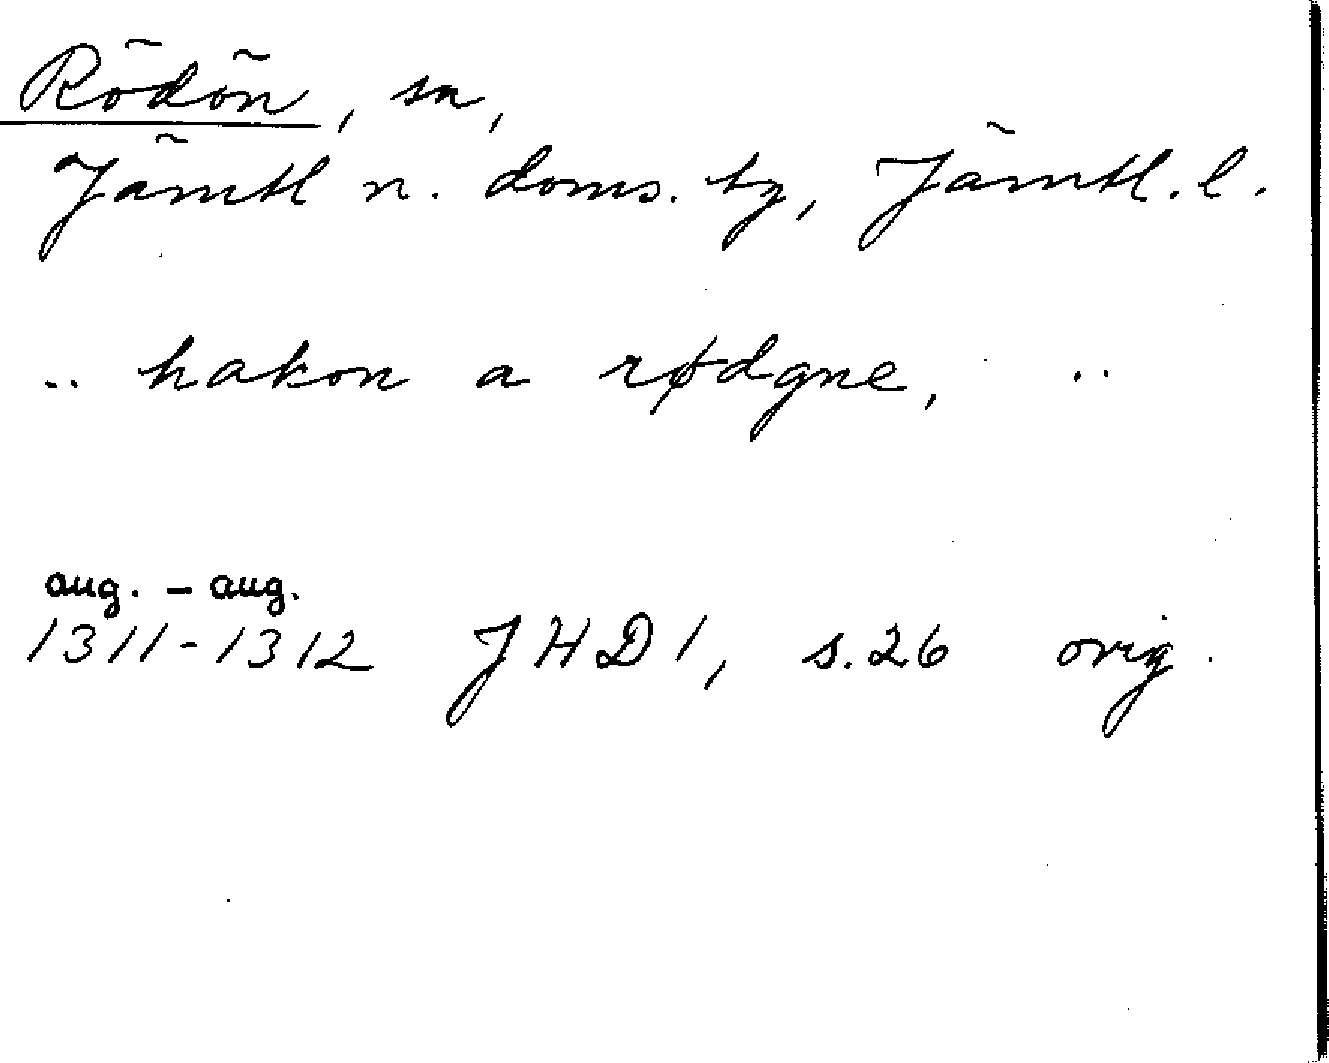 Rödön, sn,
Jämtl n. doms. tg, Jämtl. l.
.. hakon a rødgne, ..
aug. – aug.
1311-1312 JHD 1, s. 26 orig.